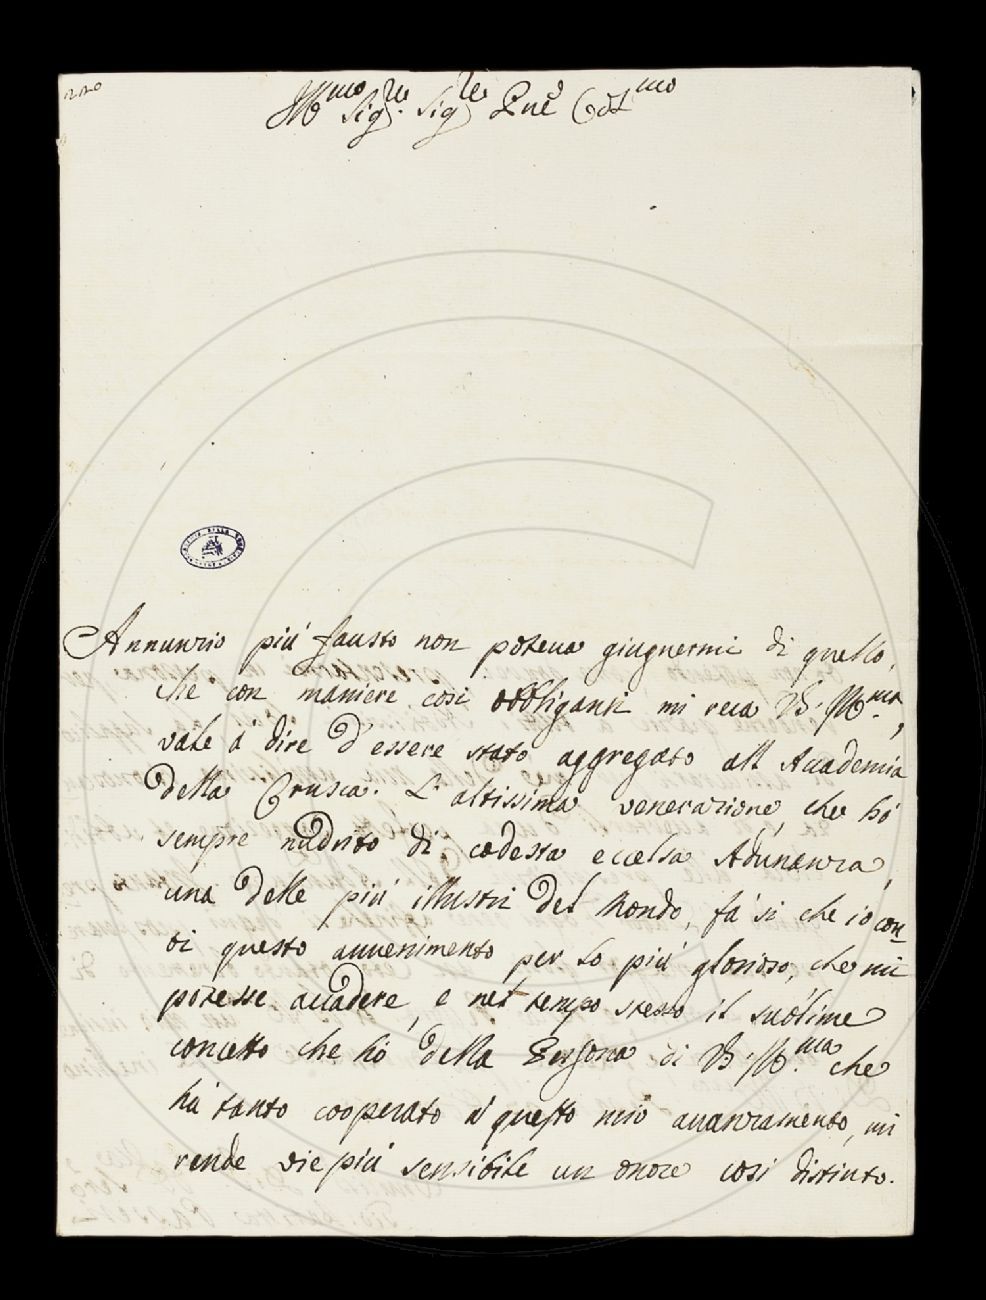 220
Ill.mo Sig.re Sig.re Pne Col.mo
Annunzio piú fausto non poteva giugnermi di quello,
che con maniere cosi obbliganti mi reca V. Ill.ma,
vale á dire d'essere stato aggregato all Accademia
della Crusca. L'altissima venerazione, che hó
sempre nudrito di codesta eccelsa Adunanza,
una delle piú illustri del Mondo, fá si che io con-
ti questo avvenimento per lo piú glorioso, che mi
potesse accadere, e nel tempo stesso il sublime
concetto che hó della Persona di V. Ill.ma che
há tanto cooperato á questo mio avanzamento, mi
rende vie piú sensibile un onore cosi distinto.